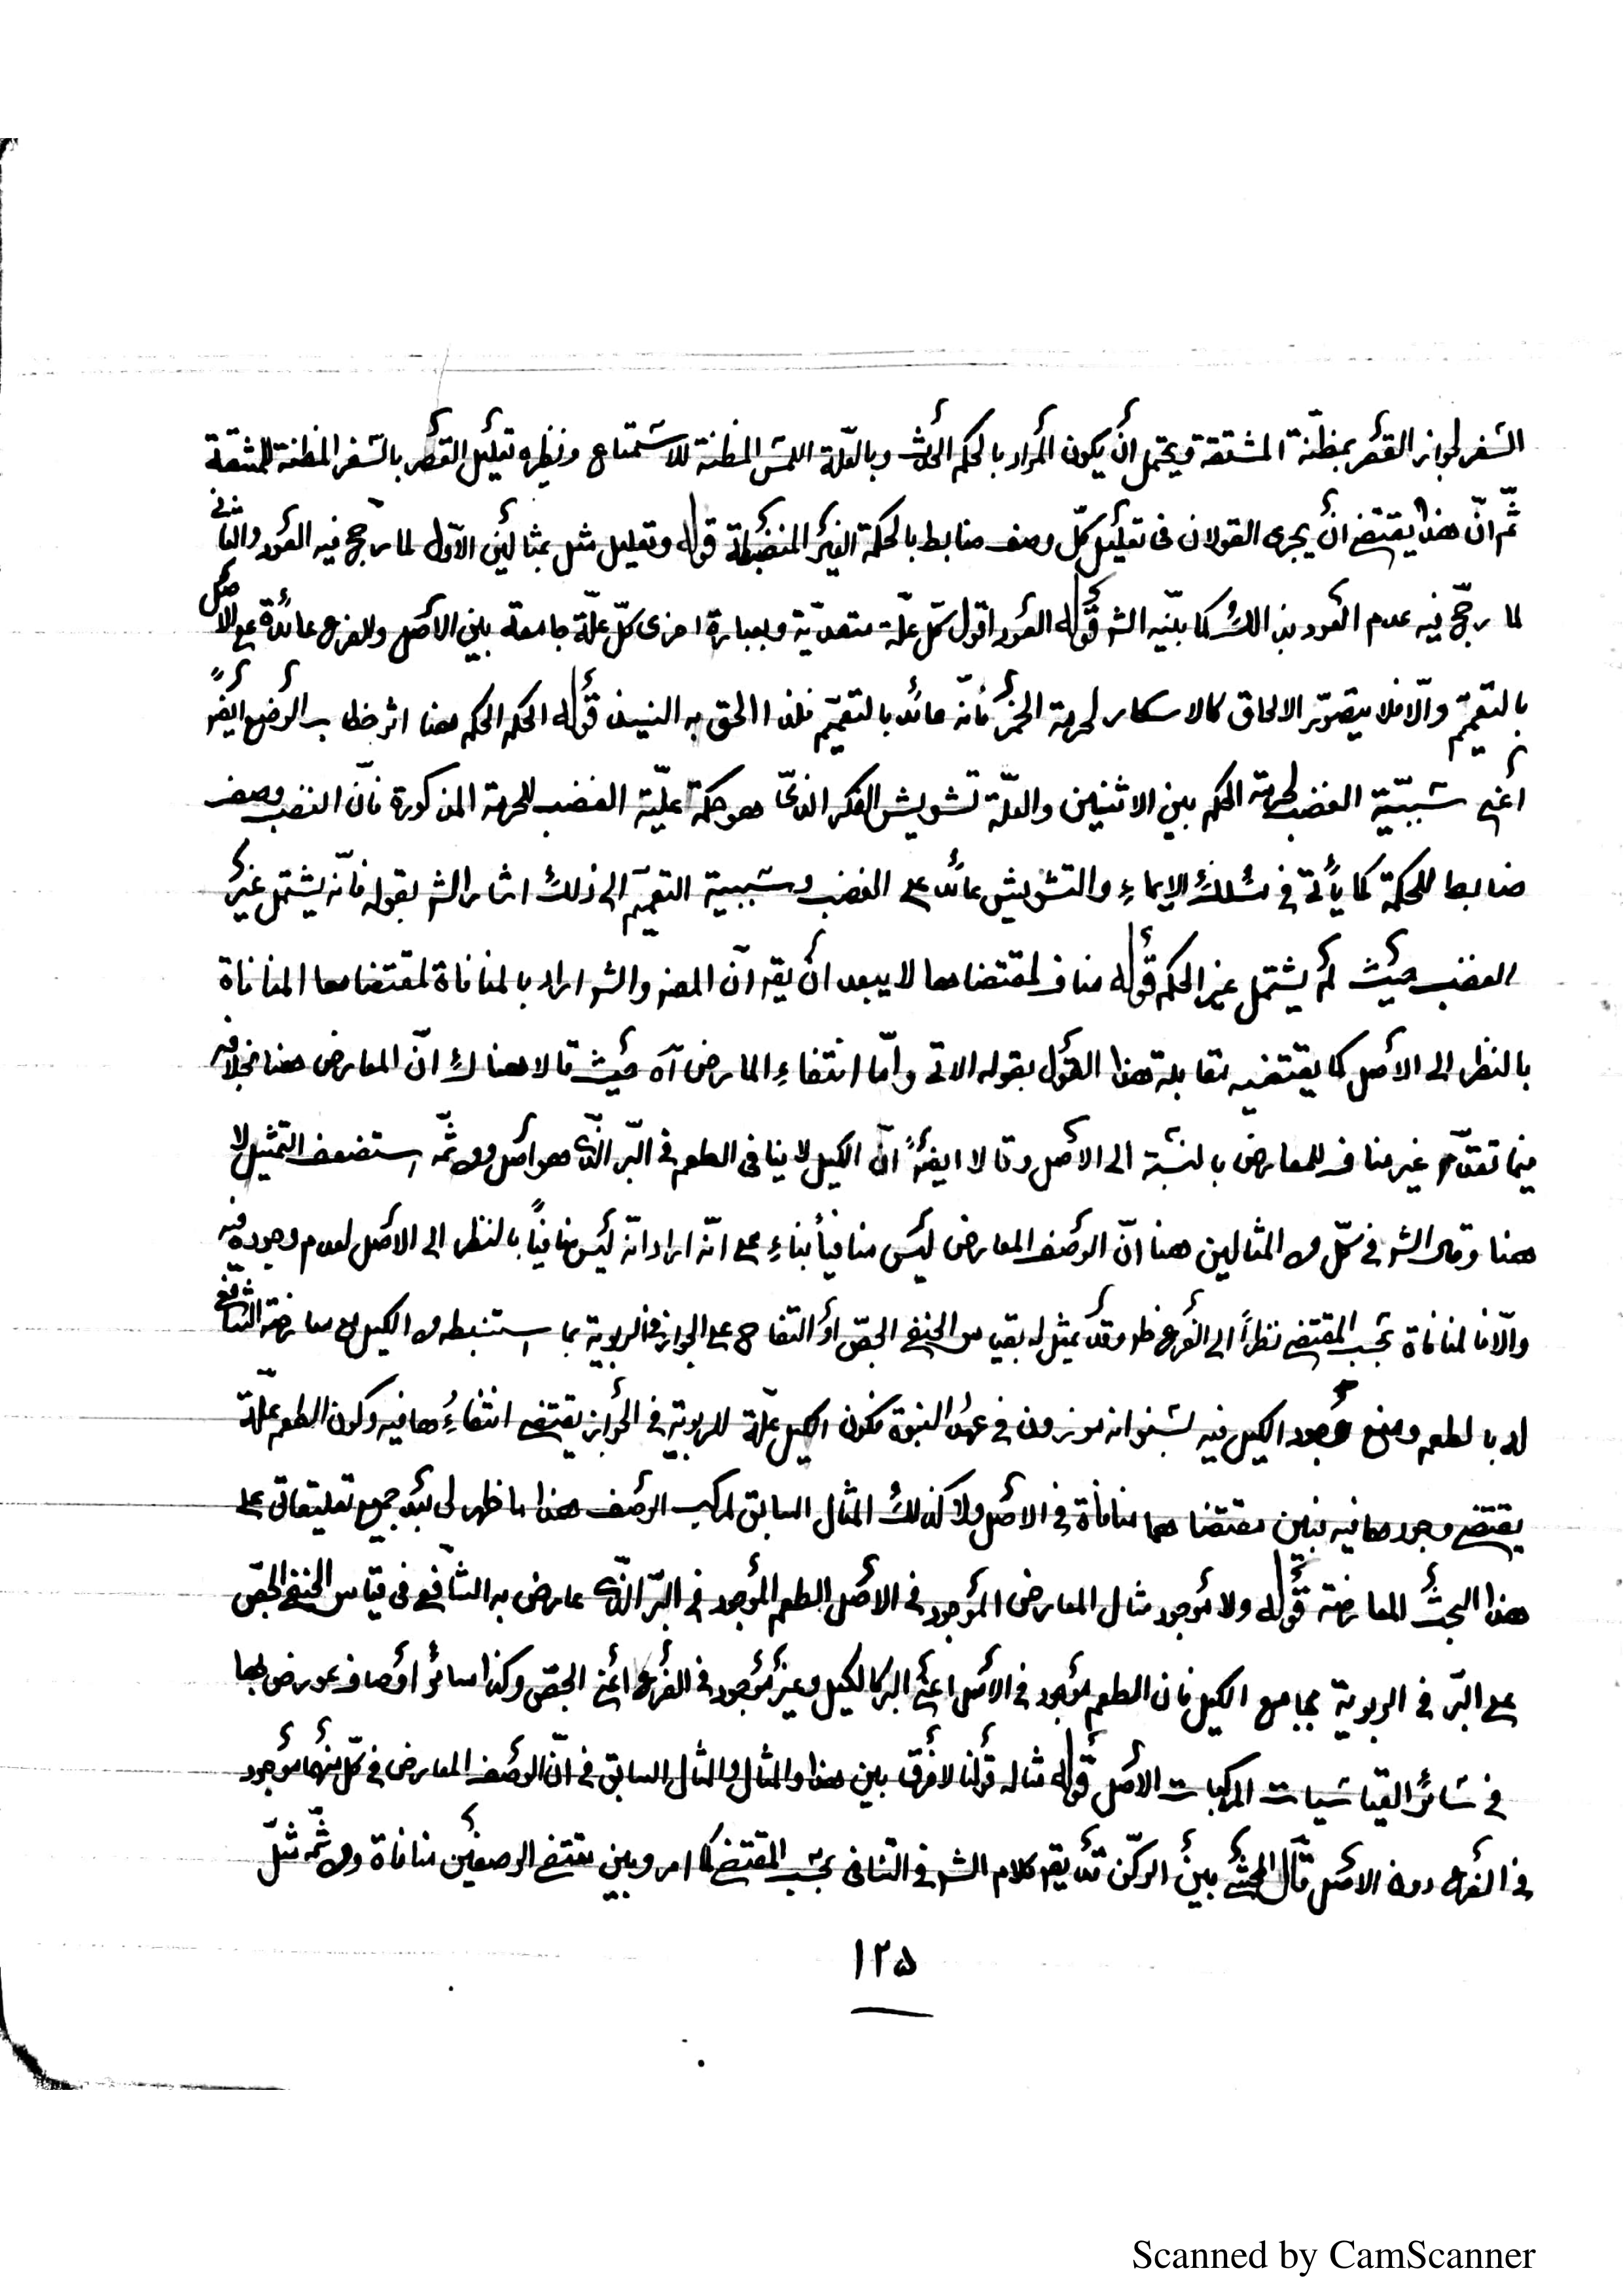 السفر لجواز القصر بمظنة المشقة ويحتمل أن يكون المراد بالحكم الحدث وبالعلة اللمس المظنة للاستمتاع ونظيره تعليل القصر بالسفر المظنة للمشقة
ثمّ انّ هذا يقتضى ان يجرى القولان فى تعليل كلّ وصف ضابط بالحكمة الغير المنضبطة قوله وتعليل مثل بمثالين الأوّل لما رجح فيه العود والثانى
لما رجّح فيه عدم العود بذالك كما بيّنه الش قوله العود اقول كلّ علّة متعدّية وبعبارة اخرى كلّ علّة جامعة بين الأصل والفرع عائدة على الاصل
بالتعميم والّا فلا يتصوّر الالحاق كالاسكار لحرمة الخمر فأنّه عائد بالتعميم فلذا الحق به النبيذ قوله الحكم الحكم هنا اثر خطاب الوضع ايضًا
أعنى سببيّة الغضب لحرمة الحكم بين الاثنين والعلّة تشويش الفكر الذىّ هو حكمة علّية الغضب للحرمة المذكورة فانّ الغضب وصف
ضابط للحكمة كما يأتى فى مسلك الإيماء والتشويش عائد على الغضب وسببية التعميم الى ذلك اشار الش بقوله فانّه يشتمل غير
الغضب حيث لم يشتمل غير الحكم قوله مناف لمقتضاها لا يبعد ان يقه انّ المصنف والش اراد بالمنافاة لمقتضاها المنافاة
بالنظر الى الأصل كما يقتضيه مقابلة هذا القول بقوله الاتى وامّا انتفاء المعارض آه حيث قالا هناك انّ المعارض هنا بخلافه
فيما تقدّم غير مناف للمعارض بالنسبة الى الأصل وقالا ايضًا انّ الكيل لا ينافى الطعم فى البرّ الذّى هو أصل ومن ثمّه استضعف التمثيل لا
هنا وقال الش فى كلّ من المثالين هنا انّ الوصف المعارض ليس منافياً بناءِ على انّه اراد انّه ليس منافيًا بالنظر الى الاصل لعدم وجوده فيه
والّا فالمنافاة بحسب المقتضى نظراً الى الفرع ظ وقد يمثل له بقياس الحنفى الجصّ او التفاح على الجواز فى الربوية بما استنبطه من الكيل مع معارضة الشافعى
له بالطعم ومنع وجود الكيل فيه لثبوت انه موزون فى عهد النبوة فكون الكيل علّة للربوية فى الجواز يقتضى انتفاءُها فيه وكون الطعم علّة
يقتضى وجودها فيه فبين مقتضاهما منافاة فى الاصل ولا كذلك المثال السابق لمركب الوصف هذا ما ظهر لى بعد جميع تعليقاتى على
هذا البحث المعارضة قوله ولا موجود مثال المعارض الموجود فى الاصل الطعم الموجود فى البرّ الذّى عارض به الشافعى فى قياس الحنفى الجصّ
على البرّ فى الربوية بجامع الكيل فان الطعم موجود فى الأصل اعنى البر كالكيل وغير موجود فى الفرع اعنى الجصّ وكذا سائر اوصاف عورض بها
فى سائر القياسيات المركبات الأصل قوله مثاله قولنا لا فرق بين هذا والمثال والمثال السابق فى انّ الوصف المعارض فى كلّ منهما موجود
فى الفرع دون الاصل قال المحشّى بين الركن قد يقه كلام الش فى التنافى بحسب المقتضى كما مر وبين مقتضى الوصفين منافاة ومن ثمّه مثّل
١٢٥
Scanned by CamScanner